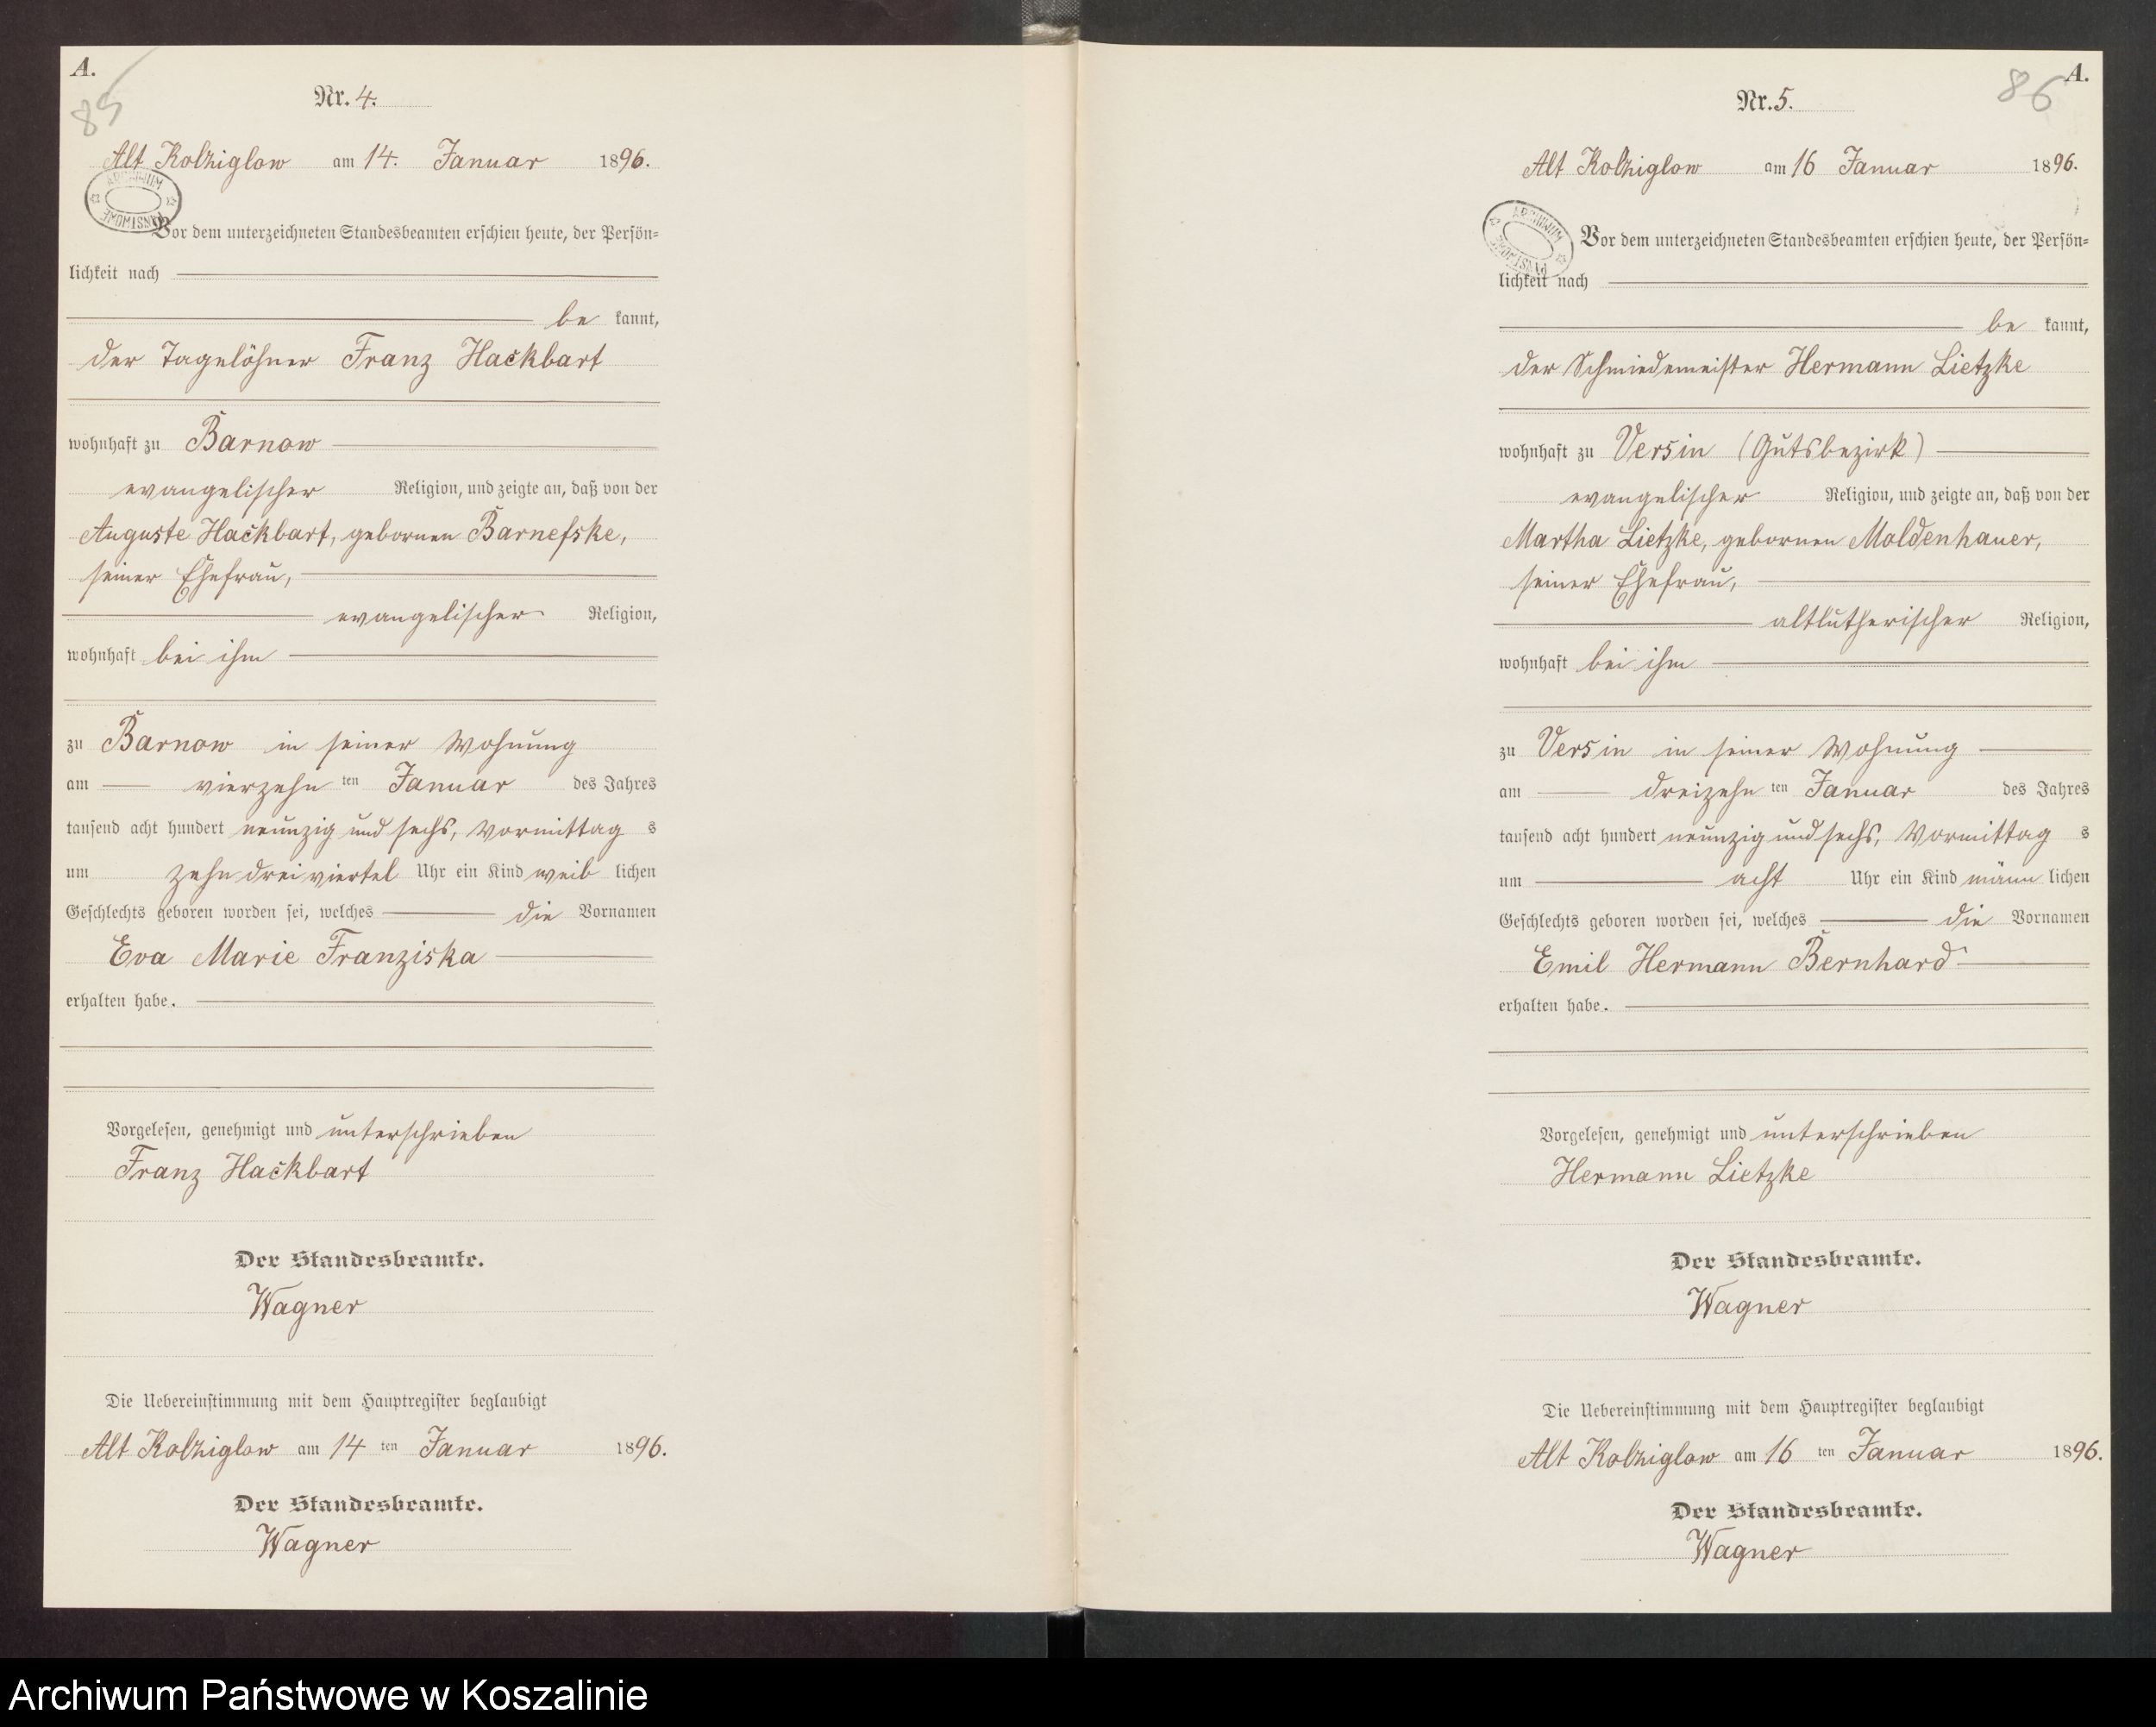 A.
85
Nr. 4.
Alt Kolziglow am 14. Januar 1896.
ARCHIWUM PAŃSTWOWE
Vor dem unterzeichneten Standesbeamten erschien heute, der Persön=
lichkeit nach
be kannt,
der Tagelöhner Franz Hackbart
wohnhaft zu Barnow
evangelischer Religion, und zeigte an, daß von der
Auguste Hackbart, gebornen Barnefske,
seiner Ehefrau,
evangelischer Religion,
wohnhaft bei ihm
zu Barnow in seiner Wohnung
am vierzehn ten Januar des Jahres
tausend acht hundert neunzig und sechs, Vormittag s
um zehn dreiviertel Uhr ein Kind weib lichen
Geschlechts geboren worden sei, welches die Vornamen
Eva Marie Franziska
erhalten habe.
Vorgelesen, genehmigt und unterschrieben
Franz Hackbart
Der Standesbeamte.
Wagner
Die Uebereinstimmung mit dem Hauptregister beglaubigt
Alt Kolziglow am 14 ten Januar 1896.
Der Standesbeamte.
Wagner
A.
86
Nr. 5.
Alt Kolziglow am 16 Januar 1896.
ARCHIWUM PAŃSTWOWE
Vor dem unterzeichneten Standesbeamten erschien heute, der Persön=
lichkeit nach
be kannt,
der Schmiedemeister Hermann Lietzke
wohnhaft zu Versin (Gutsbezirk)
evangelischer Religion, und zeigte an, daß von der
Martha Lietzke, gebornen Moldenhauer,
seiner Ehefrau,
altlutherischer Religion,
wohnhaft bei ihm
zu Versin in seiner Wohnung
am dreizehn ten Januar des Jahres
tausend acht hundert neunzig und sechs, Vormittag s
um acht Uhr ein Kind männ lichen
Geschlechts geboren worden sei, welches die Vornamen
Emil Hermann Bernhard
erhalten habe.
Vorgelesen, genehmigt und unterschrieben
Hermann Lietzke
Der Standesbeamte.
Wagner
Die Uebereinstimmung mit dem Hauptregister beglaubigt
Alt Kolziglow am 16 ten Januar 1896.
Der Standesbeamte.
Wagner
Archiwum Państwowe w Koszalinie